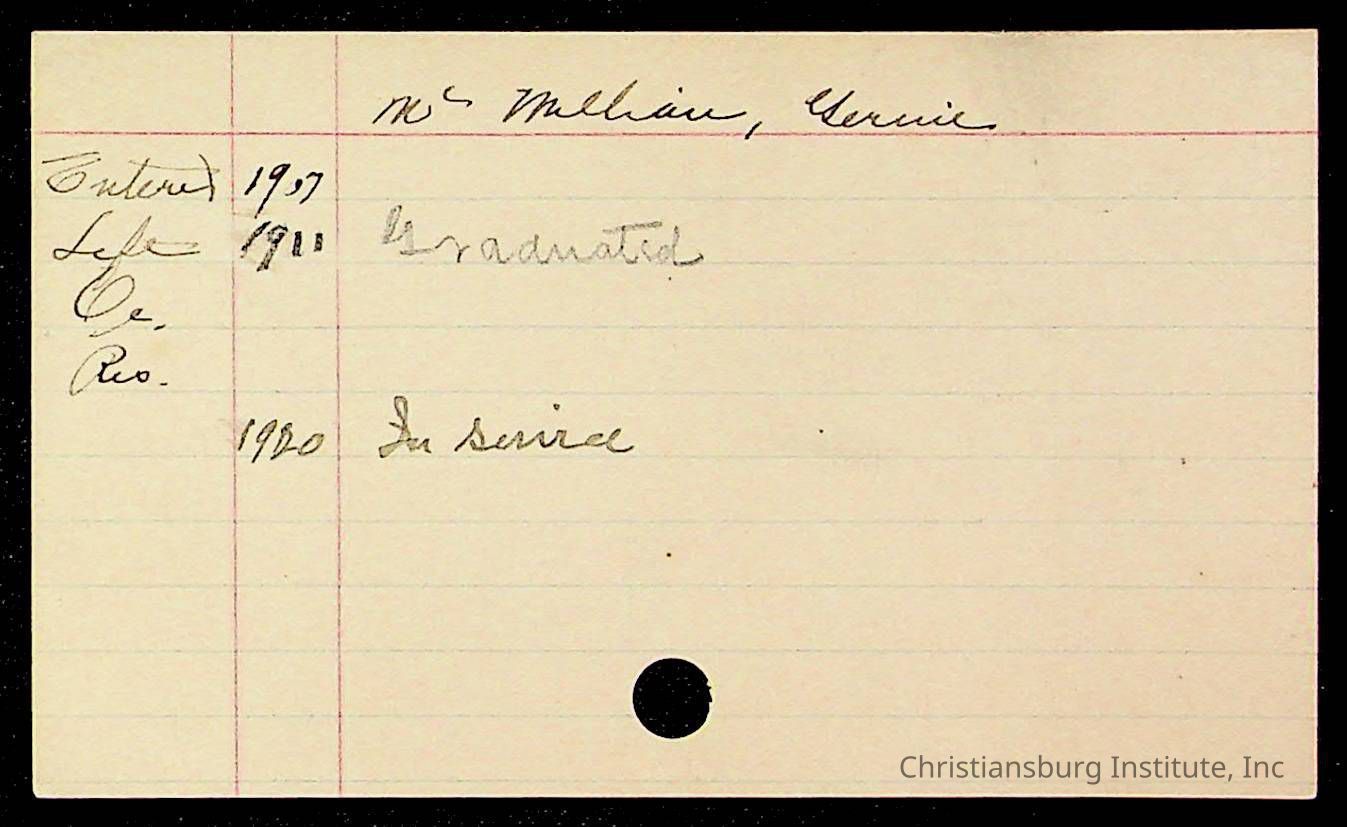 Mc Millian, Gernie
Entered 1907
Left 1911 Graduated
Oc.
Res.
1920 In service
Christiansburg Institute, Inc